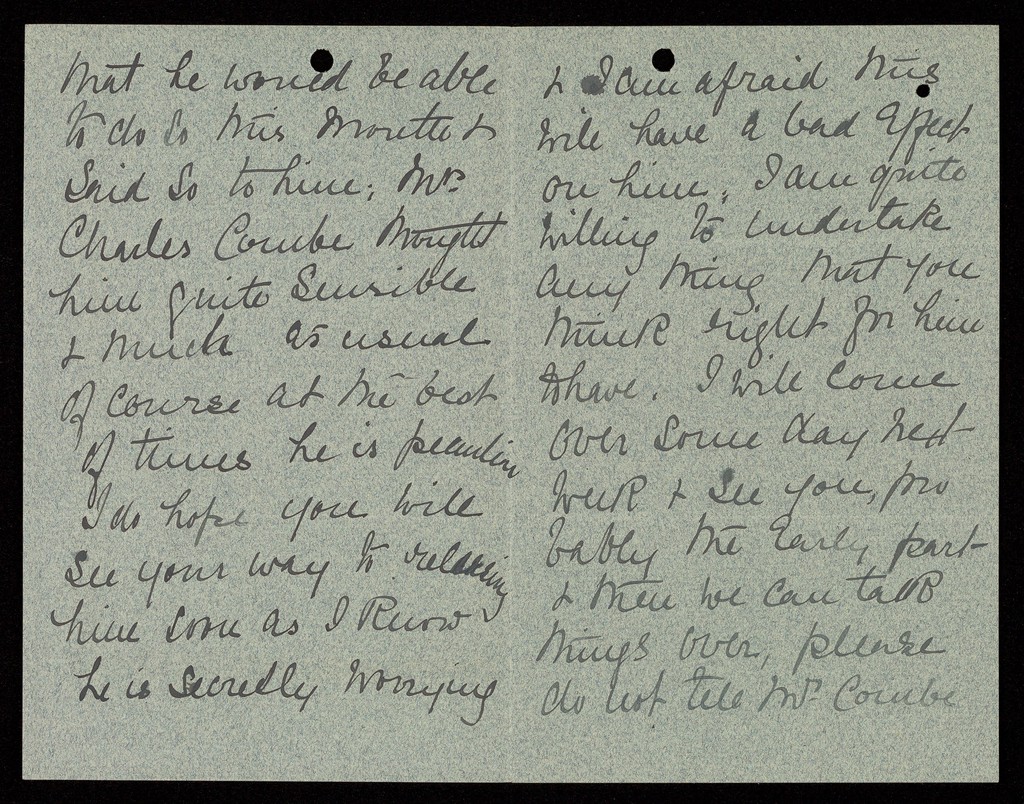 that he would be able
to do so this month &
said so to him; Mr.
Charles Combe thought
him quite sensible
& much as usual
of course at the best
of times he is peculiar
I do hope you will
see your way to releasing
him soon as I know
he is secretly worrying
& I am afraid this
will have a bad effect
on him, I am quite
willing to undertake
any thing that you
think right for him
to have. I will come
over some day next
week & see you, pro
bably the early part
& then we can talk
things over, please
do not tell Mr. Combe